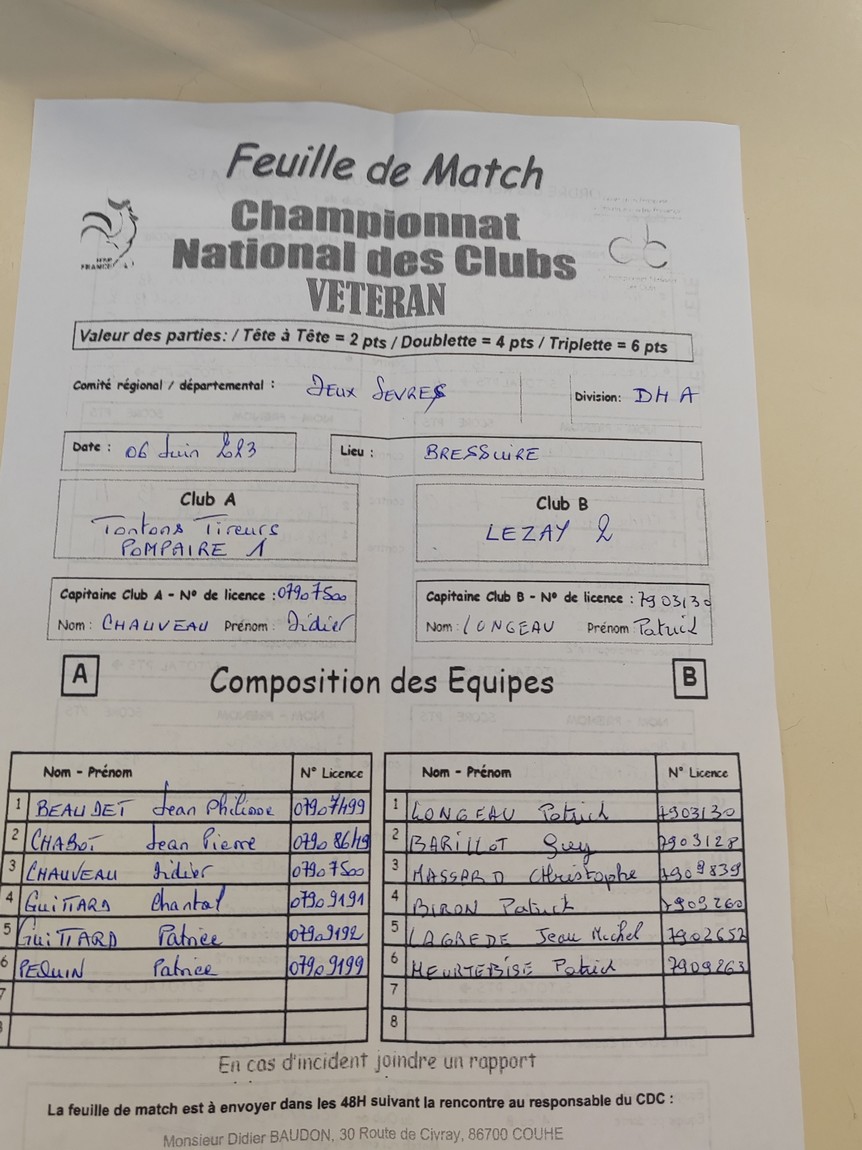 Feuille de Match
Championnat
National des Clubs
VETERAN
FRANCE
Valeur des parties: / Tête à Tête = 2 pts / Doublette = 4 pts / Triplette = 6 pts
Comité régional / départemental : DEUX SEVRES Division: DH A
Date : 06 Juin 2023 Lieu : BRESSUIRE
Club A
Tontons Tireurs
POMPAIRE 1
Club B
LEZAY 2
Capitaine Club A - N° de licence : 07907500
Nom : CHAUVEAU Prénom : Didier
Capitaine Club B - N° de licence : 7903130
Nom : LONGEAU Prénom Patrick
A Composition des Equipes B
Nom - Prénom N° Licence
1 BEAUDET Jean Philippe 07907499
2 CHABOT Jean Pierre
3 CHAUVEAU Didier 07907500
4 GUITTARD Chantal 07909191
5 GUITTARD Patrice 07909192
6 PEQUIN Patrice 07909199
7
8
Nom - Prénom N° Licence
1 LONGEAU Patrick 7903130
2 BARILLOT Guy 7903128
3 MASSARD Christophe 7909839
4 BIRON Patrick 7909260
5 LAGREDE Jean Michel 7902652
6 HEURTEBISE Patrick 7909263
7
8
En cas d'incident joindre un rapport
La feuille de match est à envoyer dans les 48H suivant la rencontre au responsable du CDC :
Monsieur Didier BAUDON, 30 Route de Civray, 86700 COUHE